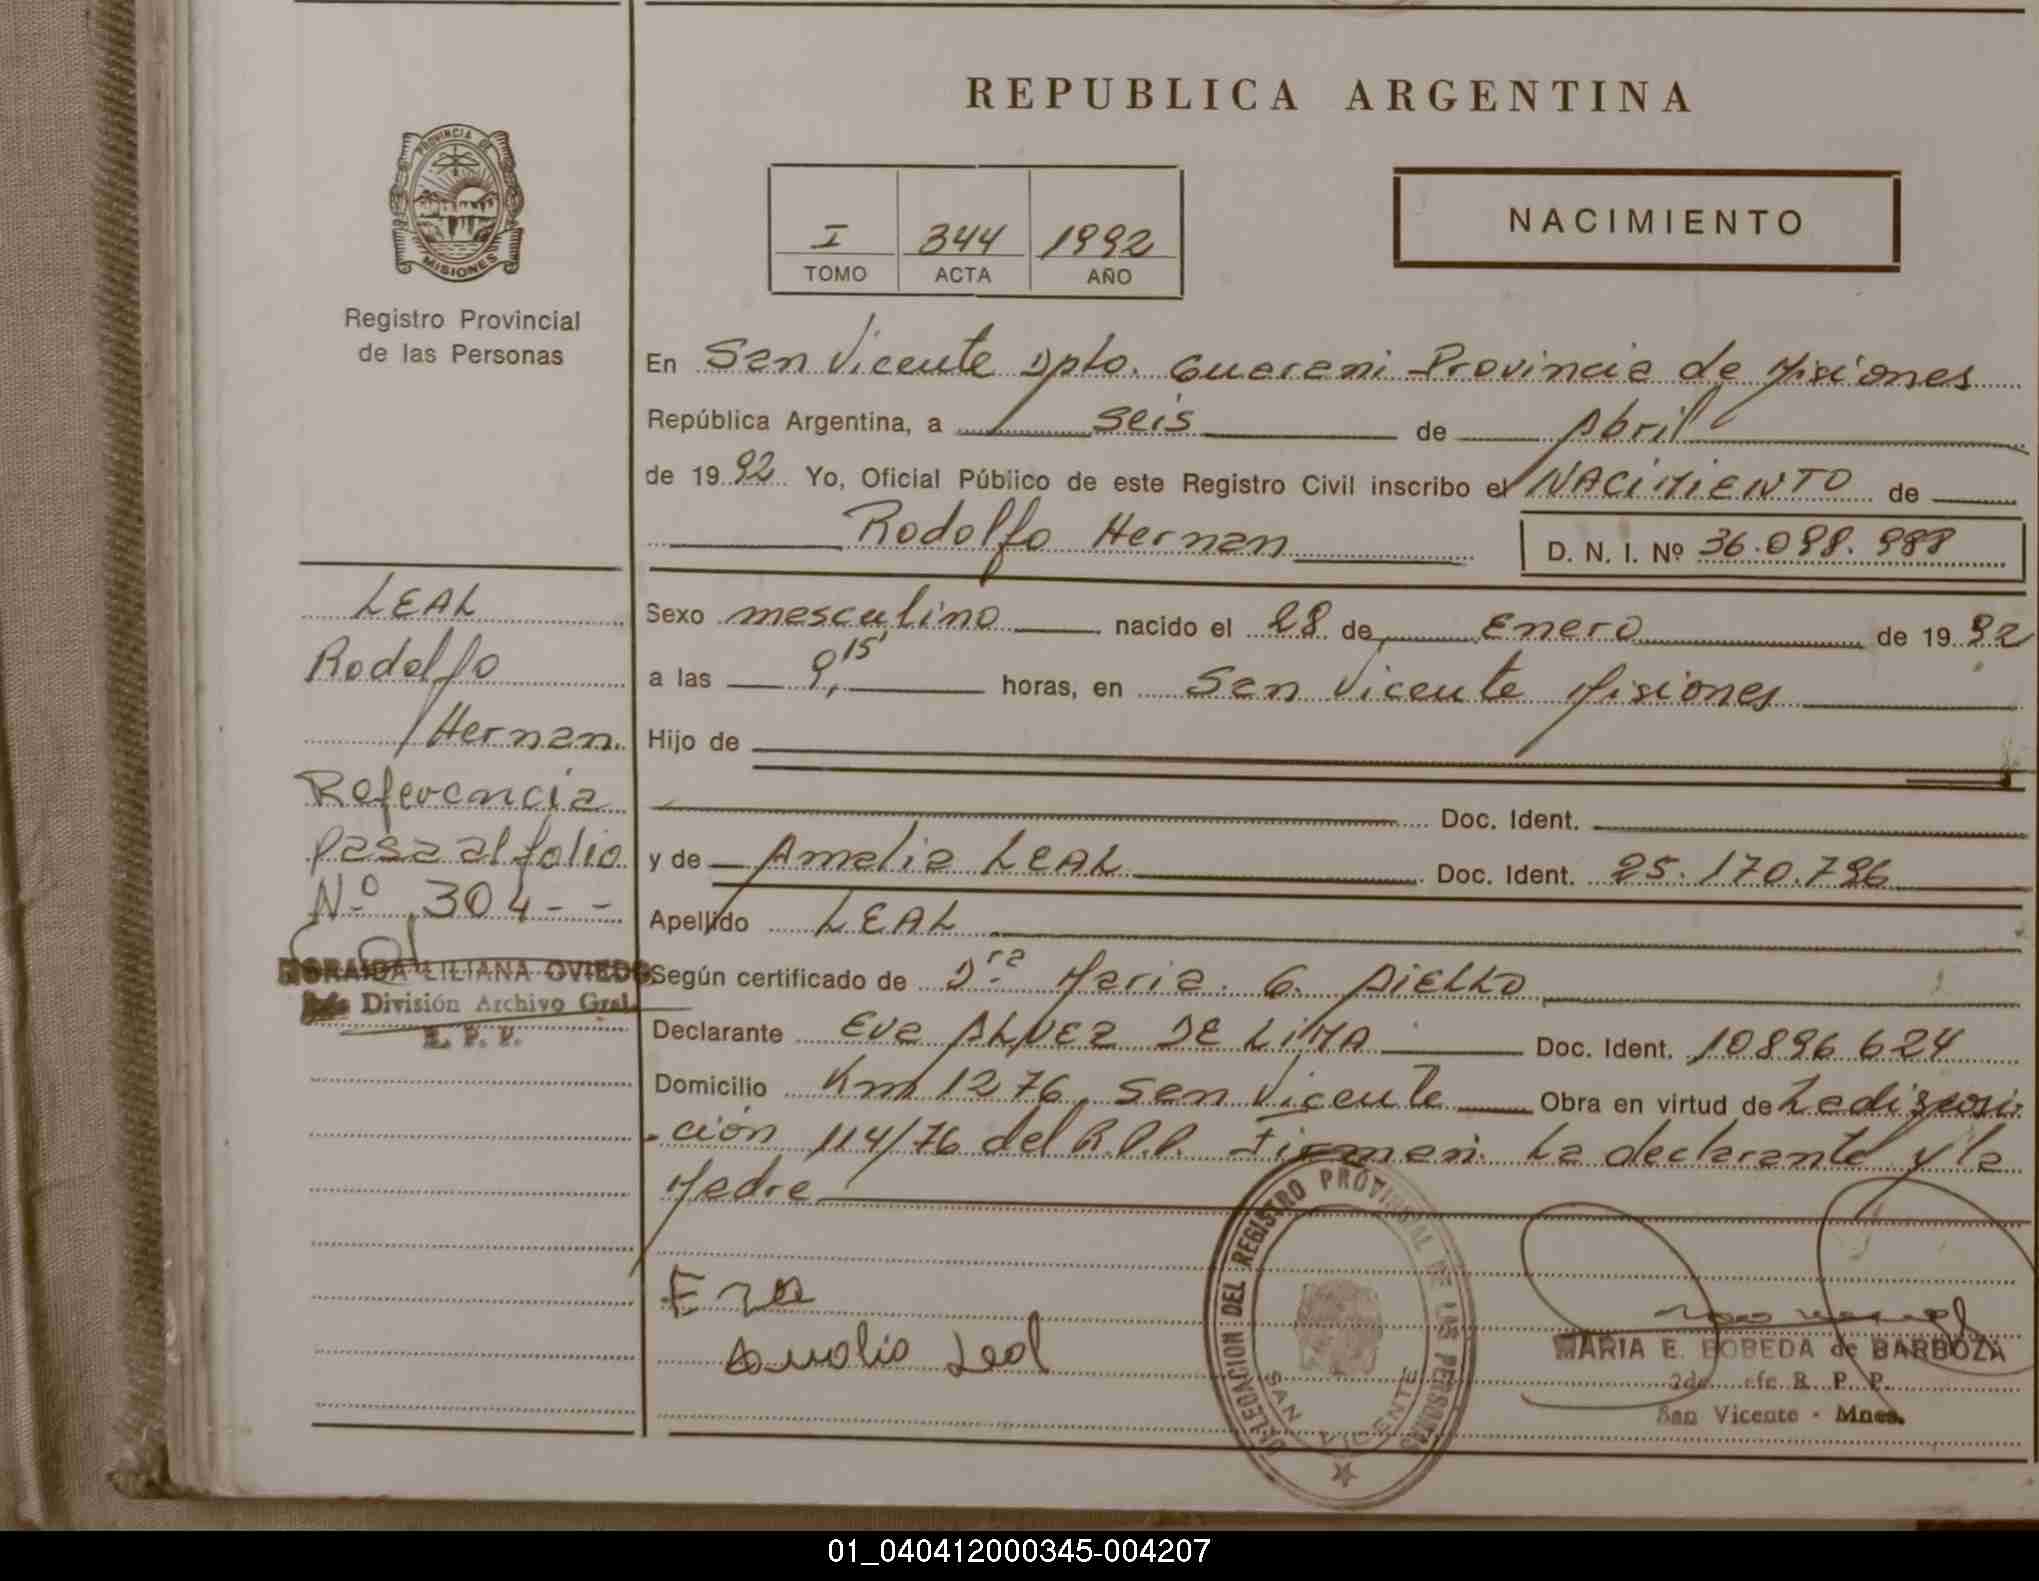 REPUBLICA ARGENTINA
PROVINCIA DE
MISIONES
Registro Provincial
de las Personas
I 344 1992
TOMO ACTA AÑO
NACIMIENTO
En San Vicente Dpto. Guarani Provincia de Misiones
República Argentina, a seis de Abril
de 1992 Yo, Oficial Público de este Registro Civil inscribo el NACIMIENTO de
Rodolfo Hernan D. N. I. Nº 36.098.988
LEAL
Rodolfo
Hernan
Referencia
pasa al folio
Nº 304 - -
LILIANA OVIEDO
División Archivo Gral.
R. P. P.
Sexo masculino nacido el 28 de Enero de 1992
a las 9,15' horas, en San Vicente Misiones
Hijo de
Doc. Ident.
y de Amalia LEAL Doc. Ident. 25.170.796
Apellido LEAL
Según certificado de Dra Maria G. AIELLO
Declarante Eva ALVEZ DE LIMA Doc. Ident. 10896624
Domicilio Km 1276 San Vicente Obra en virtud de La disposi
ción 114/76 del R.P.P. Firman: La declarante y la
Madre
Eva
Amalia Leal
DELEGACION DEL REGISTRO PROVINCIAL DE LAS PERSONAS
SAN VICENTE
MARIA E. BOBEDA de BARBOZA
R. P. P.
San Vicente - Mnes.
01_040412000345-004207